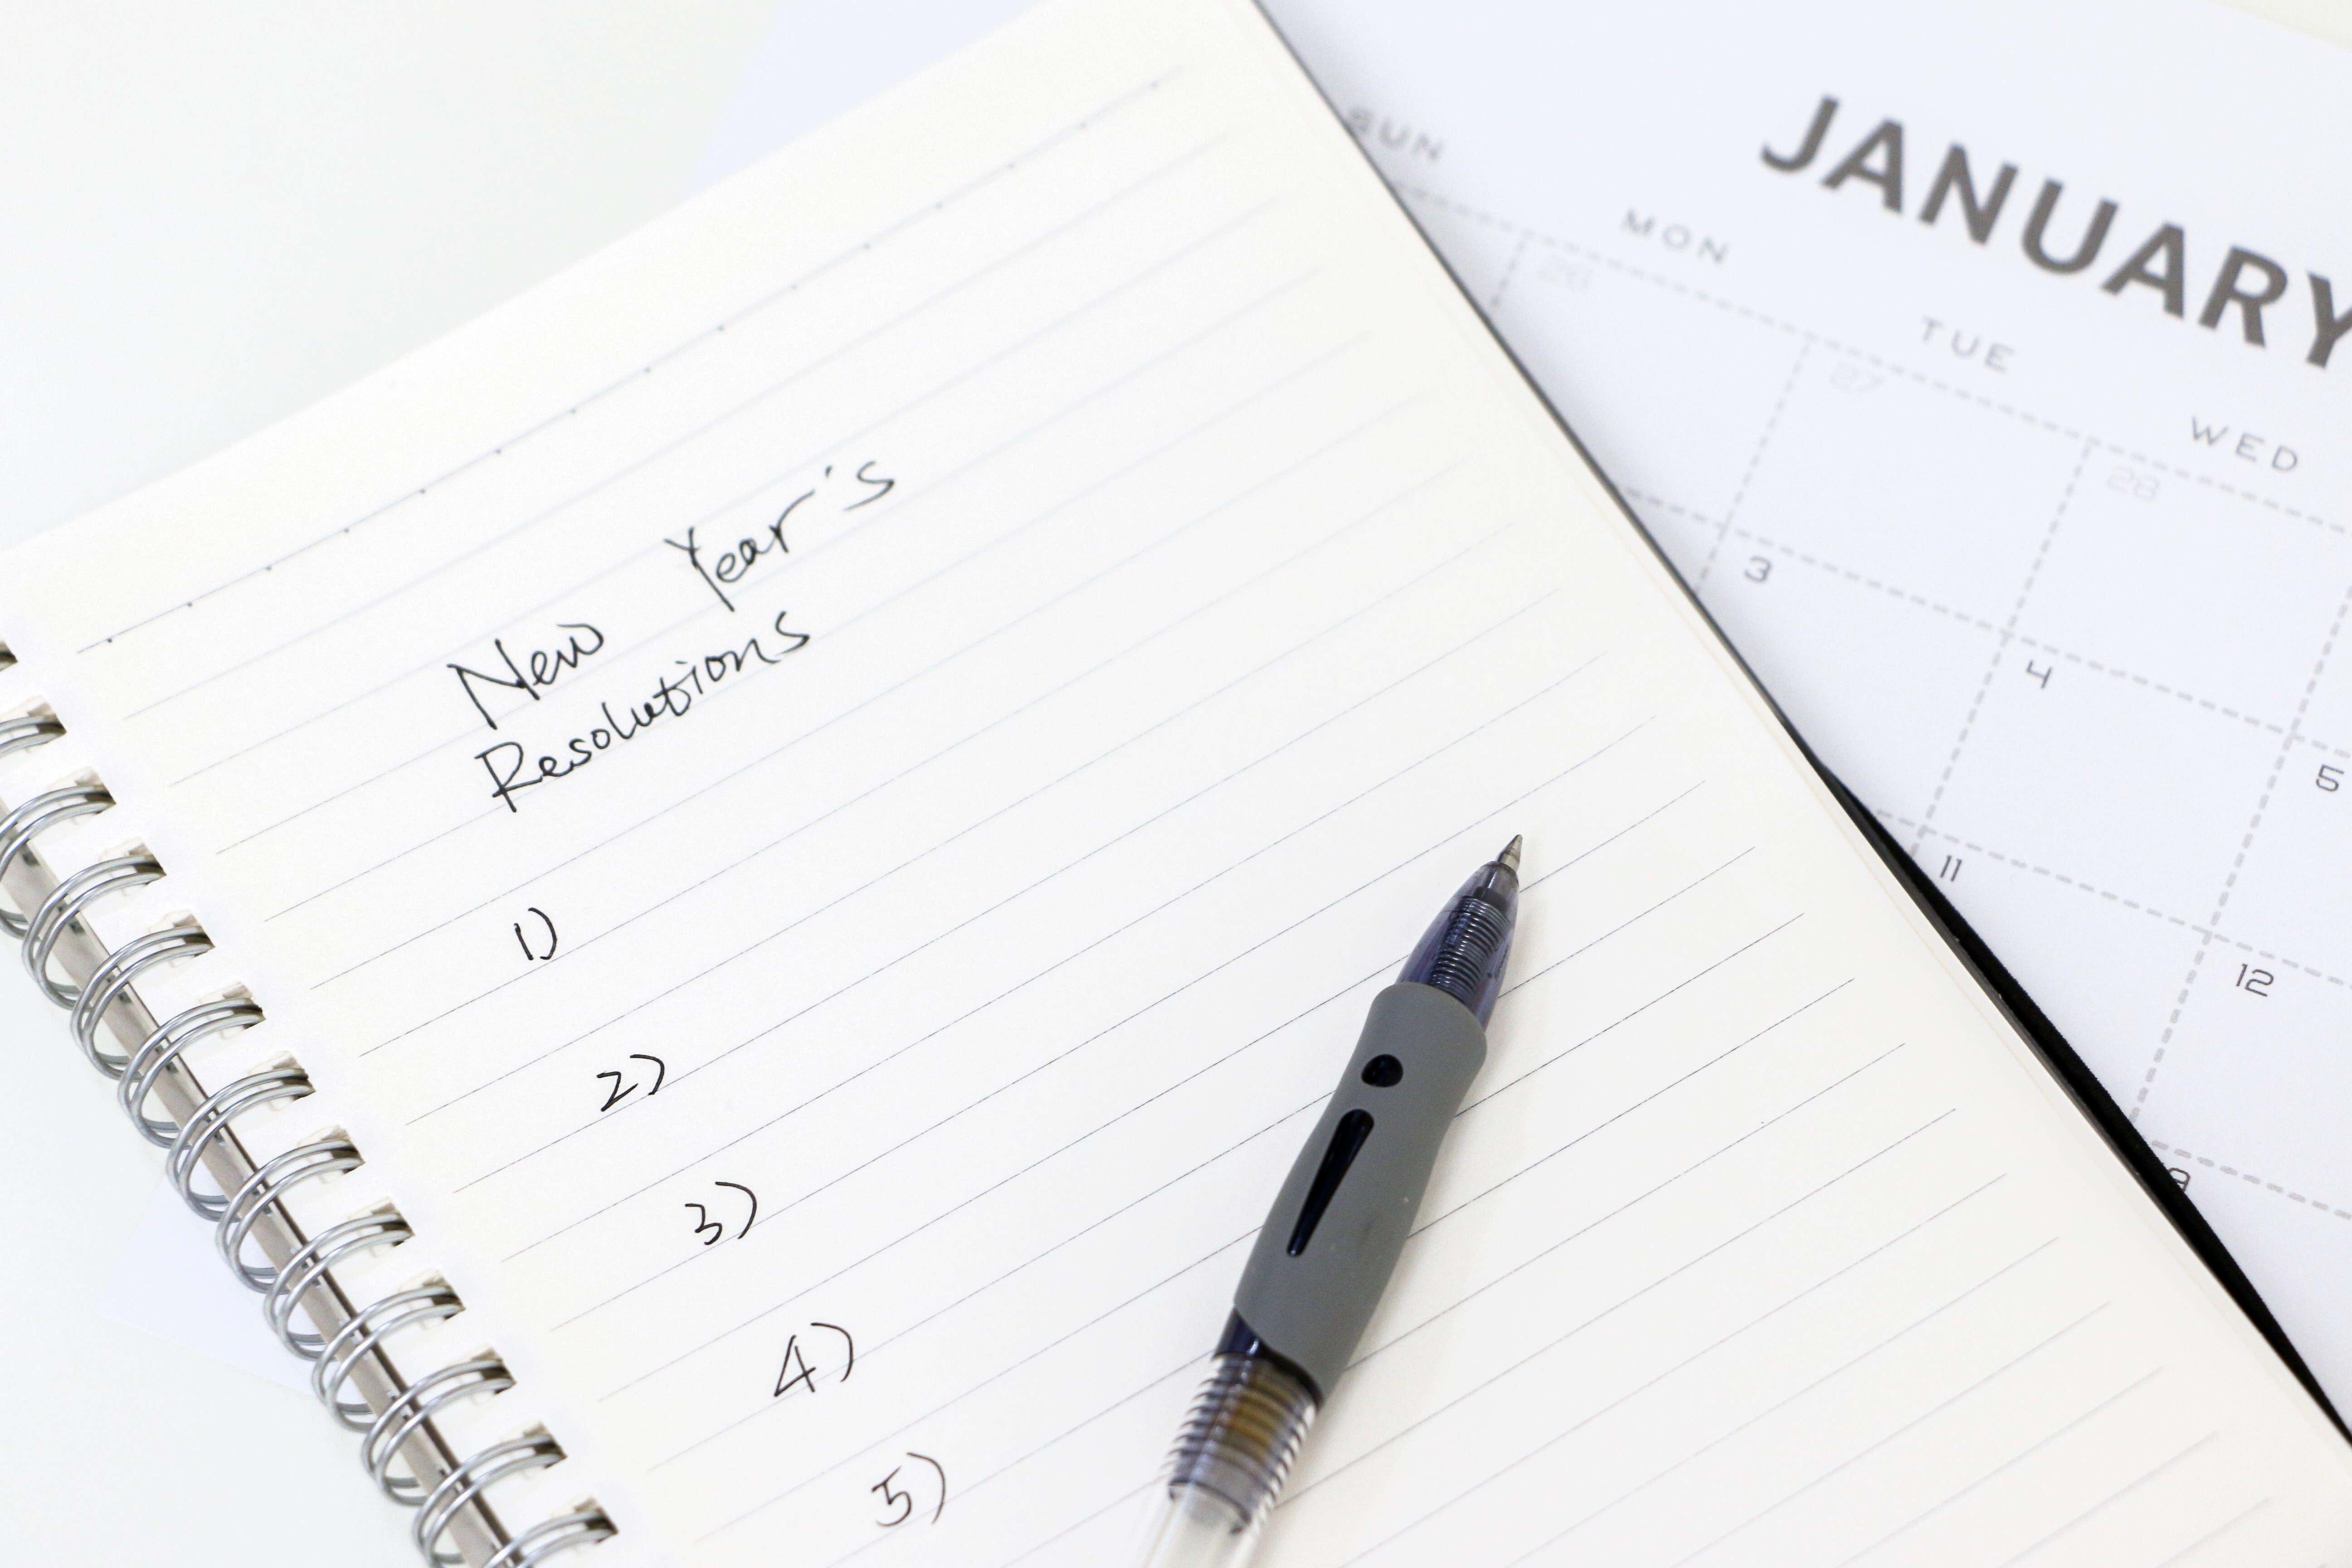 New Year's
Resolutions
1)
2)
3)
4)
5)
JANUARY
SUN
MON
TUE
WED
26
27
28
3
4
5
11
12